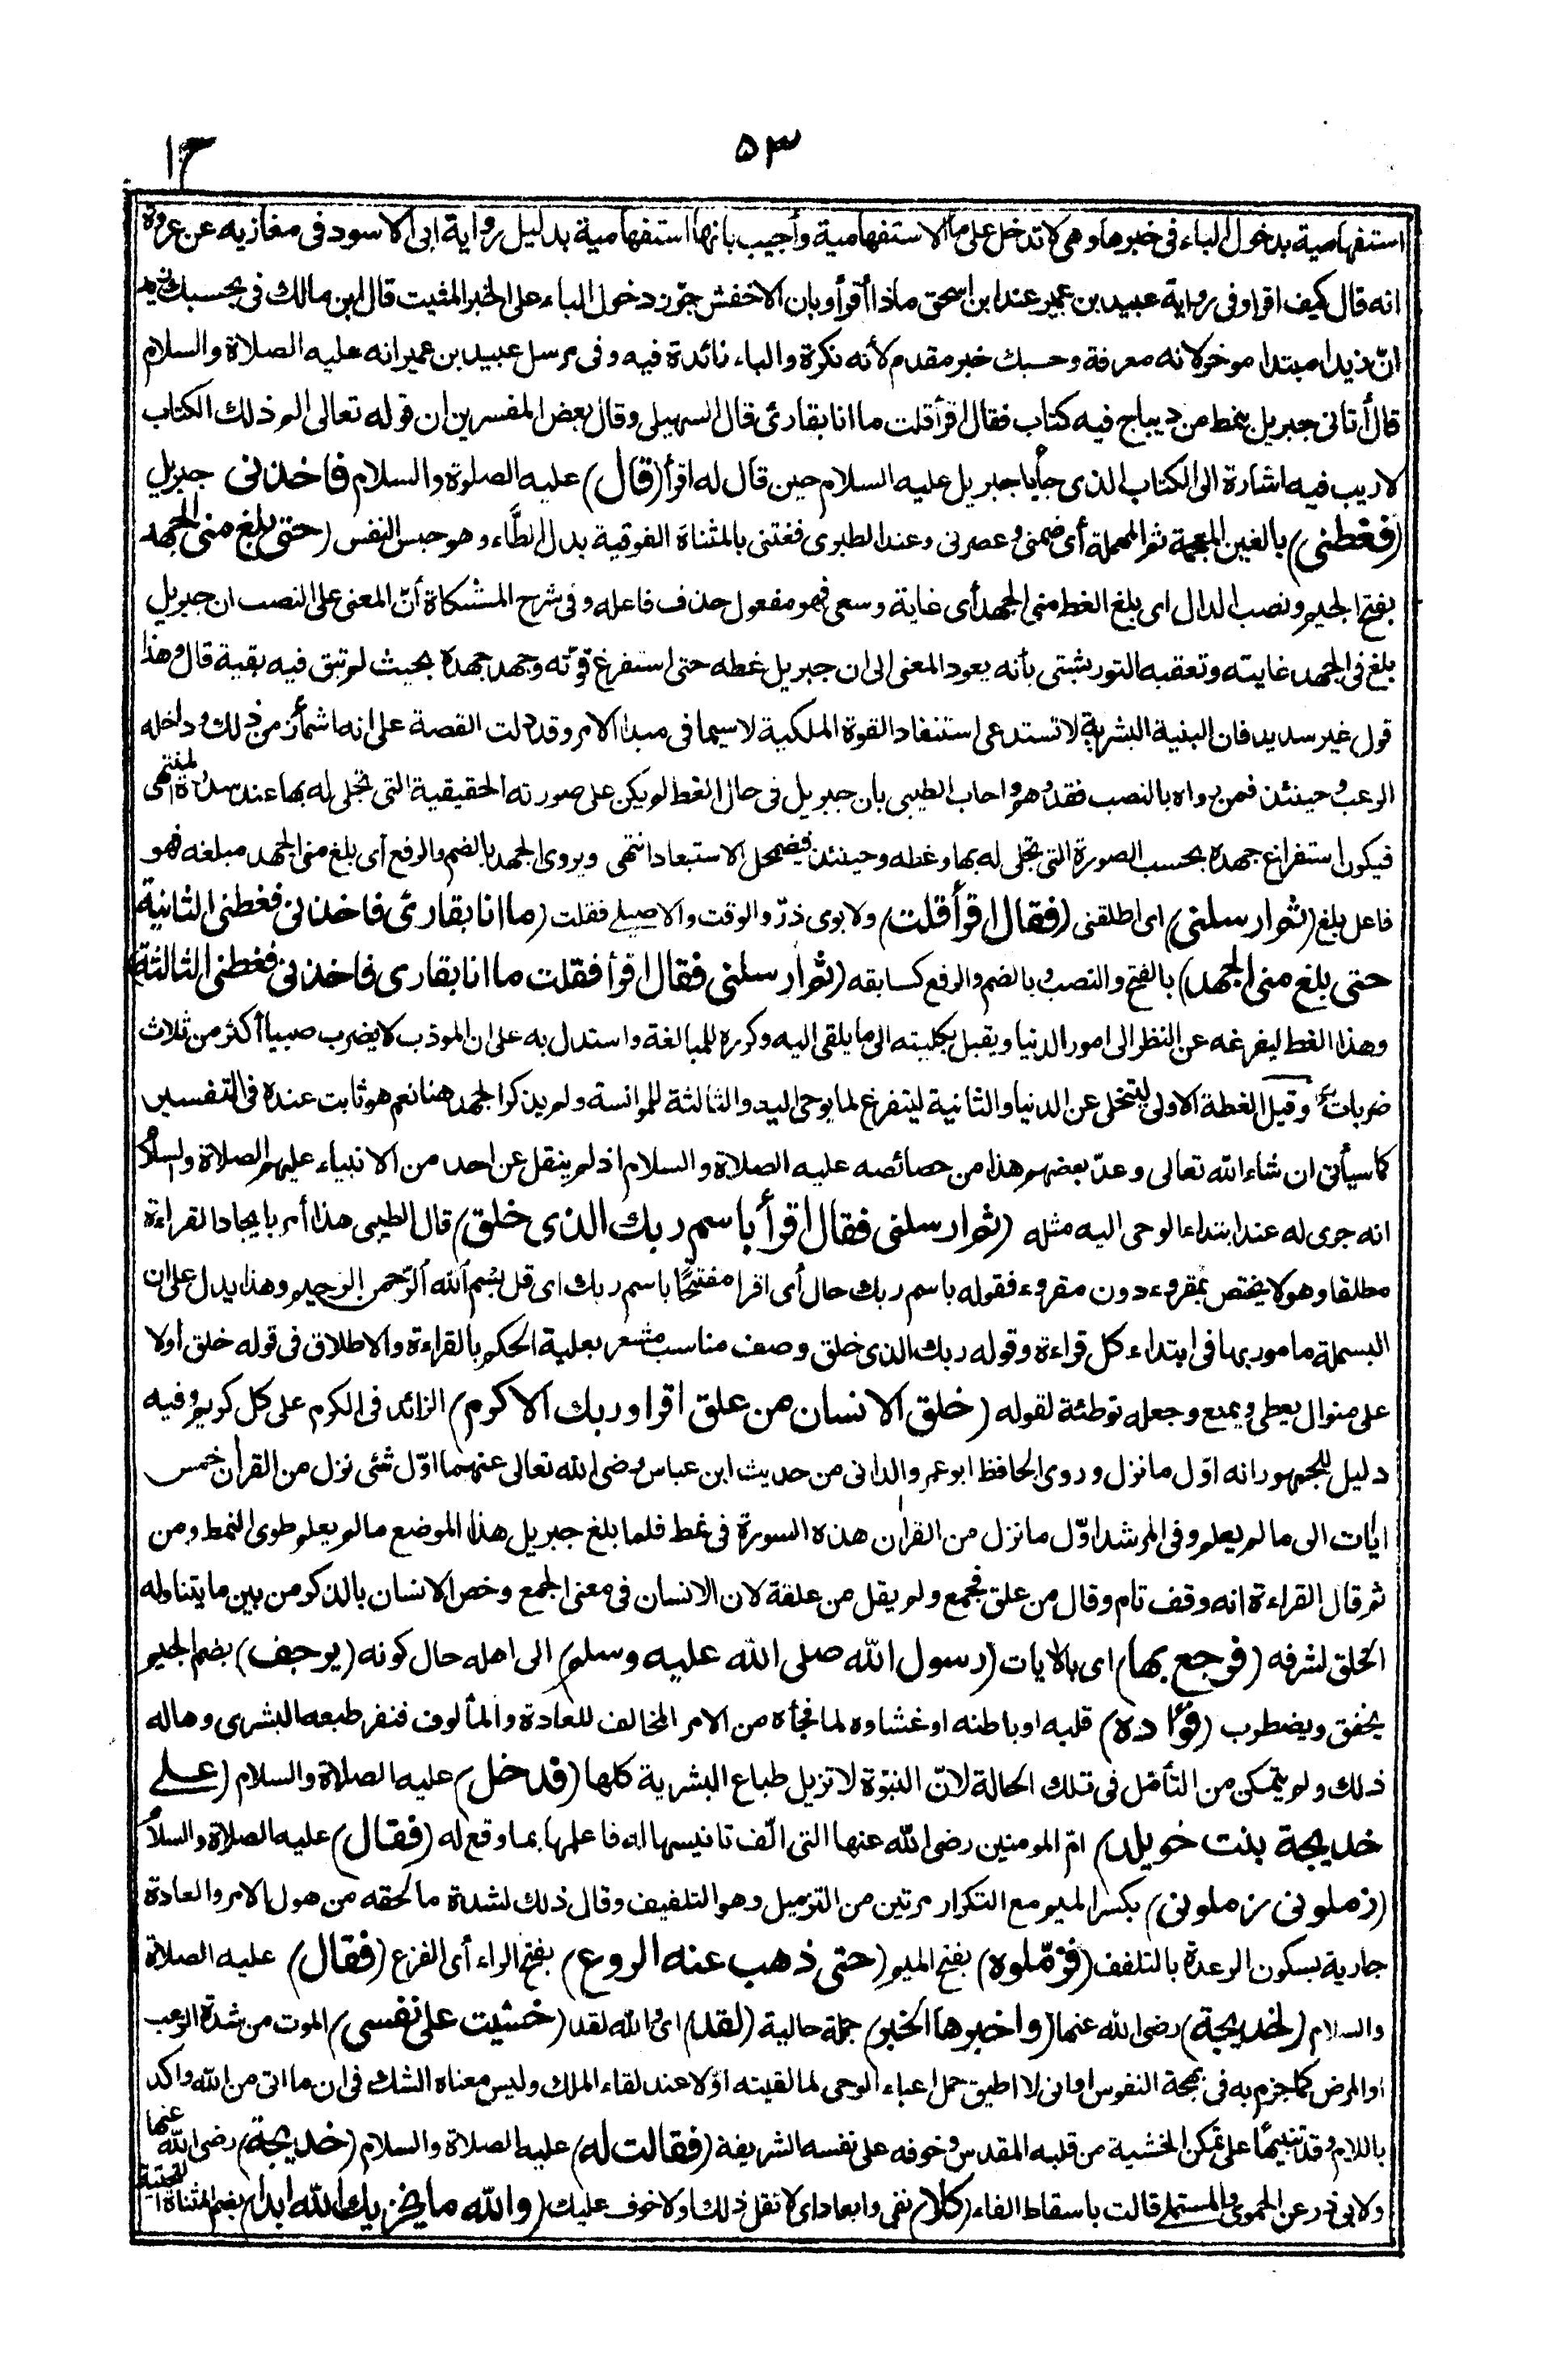 ۵۳
۱۳
استفهامية بدخول الباء في خبرها وهي لا تدخل على ما الاستفهامية وأجيب بانها استفهامية بدليل رواية ابى الاسود فى مغازيه عن عروة
انه قال كيف اقرا وفى رواية عبيد بن عمير عند ابن اسحق ماذا أقرأ وبان الاخفش جوّز دخول الباء على الخبر المثبت قال ابن مالك فى بحسبك زيد
انّ زيدا مبتدا موخر لانه معرفة وحسبك خبر مقدم لأنه نكرة والباء زائدة فيه وفى مرسل عبيد بن عمير انه عليه الصلاة والسلام
قال أتانى جبريل بنمط من ديباج فيه كتاب فقال اقرأ قلت ما انا بقارئ قال السهيلى وقال بعض المفسرين ان قوله تعالى الم ذلك الكتاب
لا ريب فيه اشارة الى الكتاب الذى جأ با جبريل عليه السلام حين قال له اقرأ (قال) عليه الصلوة والسلام فاخذنى جبريل
(فغطنى) بالغين المعجمة ثم المهملة أى ضمنى وعصرنى وعند الطبرى فغتنى بالمثناة الفوقية بدل الطَّاء وهو حبس النفس (حتى بلغ منى الجهد
بفتح الجيم ونصب الدال اى بلغ الغط منى الجهد أى غاية وسعى فهو مفعول حذف فاعله وفى شرح المشكاة أنّ المعنى على النصب ان جبريل
بلغ فى الجهد غايته وتعقبه التوربشتى بأنه يعود المعنى الى ان جبريل غطه حتى استفرغ قوّته وجهد جهده بحيث لم تبق فيه بقية قال وهذا
قول غير سديد فان البنية البشرية لا تستدعى استنفاد القوة الملكية لا سيما فى مبدا الامر وقد دلت القصة على انه اشمأز من ذلك وداخله
الرعب وحينئذ فمن رواه بالنصب فقد وهم واجاب الطيبى بان جبريل فى حال الغط لم يكن على صورته الحقيقية التى تجلى له بها عند سدرة المنتهى
فيكون استفراغ جهده بحسب الصورة التى تجلى له بها وغطه وحينئذ فيضمحل الاستبعاد انتهى ويروى الجهد بالضم والرفع أى بلغ منى الجهد مبلغه فهو
فاعل بلغ (ثم ارسلنى) اى اطلقنى (فقال اقرأ قلت) ولابوى ذرّ والوقت والاصيلے فقلت (ما انا بقارئ فاخذنى فغطنى الثانية
حتى بلغ منى الجهد) بالفتح والنصب وبالضم والرفع كسابقه (ثم ارسلنى فقال اقرأ فقلت ما انا بقارى فاخذنى فغطنى الثالثة)
وهذا الغط ليفرغه عن النظر الى امور الدنيا ويقبل بكليته الى ما يلقى اليه وكرره للمبالغة واستدل به على ان المودّب لا يضرب صبيا أكثر من ثلاث
ضربات وقيل الغطة الاولى ليتخلى عن الدنيا والثانية ليتفرغ لما يوحى اليه والثالثة للموانسة ولم يذكر الجهد هنا نعم هو ثابت عنده فى التفسير
كما سيأتى ان شاء الله تعالى وعدّ بعضهم هذا من خصائصه عليه الصلاة والسلام اذ لم ينقل عن احد من الانبياء عليهم الصلاة والسلام
انه جرى له عند ابتداء الوحى اليه مثله (ثم ارسلنى فقال اقرأ باسم ربك الذى خلق) قال الطيبى هذا أمر بايجاد القراءة
مطلقا وهو لا يختص بمقروء دون مقروء فقوله باسم ربك حال أى اقرا مفتتحًا باسم ربك اى قل بسم الله الرحمن الرحيم وهذا يدل على ان
البسملة مامور بها فى ابتداء كل قراءة وقوله ربك الذى خلق وصف مناسب مشعر بعلية الحكم بالقراءة والاطلاق فى قوله خلق أولا
على منوال يعطى ويمنع وجعله توطئة لقوله (خلق الانسان من علق اقرا وربك الاكرم) الزائد فى الكرم على كل كريم وفيه
دليل للجمهور انه اوّل ما نزل وروى الحافظ ابو عمرو الدانى من حديث ابن عباس رضى الله تعالى عنهما اوّل شئى نزل من القرأن خمس
ايأت الى ما لم يعلم وفى المرشد اوّل ما نزل من القرأن هذه السورة فى نمط فلما بلغ جبريل هذا الموضع ما لم يعلم طوى النمط ومن
ثم قال القراءة انه وقف تام وقال من علق فجمع ولم يقل من علقة لان الانسان فى معنى الجمع وخص الانسان بالذكر من بين ما يتناوله
الخلق لشرفه (فرجع بها) اى بالايات (رسول الله صلى الله عليه وسلم) الى اهله حال كونه (يرجف) بضم الجيم
يخفق ويضطرب (فؤاده) قلبه او باطنه او غشاوه لما فجأه من الامر المخالف للعادة والمألوف فنفر طبعه البشرى وهاله
ذلك ولم يتمكن من التأمّل فى تلك الحالة لانّ النبوّة لا تزيل طباع البشرية كلها (فدخل) عليه الصلاة والسلام (علے
خديجة بنت خويلد) امّ المومنين رضى الله عنها التى الّف تانيسها له فاعلمها بما وقع له (فقال) عليه الصلاة والسلام
(زملونى زملونى) بكسر الميم مع التكرار مرتين من التزميل وهو التلفيف وقال ذلك لشدة ما لحقه من هول الامر والعادة
جارية بسكون الرعدة بالتلفف (فزمّلوه) بفتح الميم (حتى ذهب عنه الروع) بفتح الراء أى الفزع (فقال) عليه الصلاة
والسلام (لخديجة) رضى الله عنها (واخبرها الخبر) جملة حالية (لقد) اى والله لقد (خشيت على نفسى) الموت من شدة الرعب
او المرض كما جزم به فى بهجة النفوس او انى لا اطيق حمل اعباء الوحى لما لقيته اوّلا عند لقاء الملك وليس معناه الشك فى ان ما اتى من الله واكد
باللام وقد تنبيهًا على تمكن الخشية من قلبه المقدس وخوفه على نفسه الشريفة (فقالت له) عليه الصلاة والسلام (خديجة) رضى الله عنها
ولابى ذر عن الحموى والمستملے قالت باسقاط الفاء (كلا) نفى وابعاد اى لا تقل ذلك او لا خوف عليك (والله ما يخزيك الله ابدا) بضم المثناة التحتية